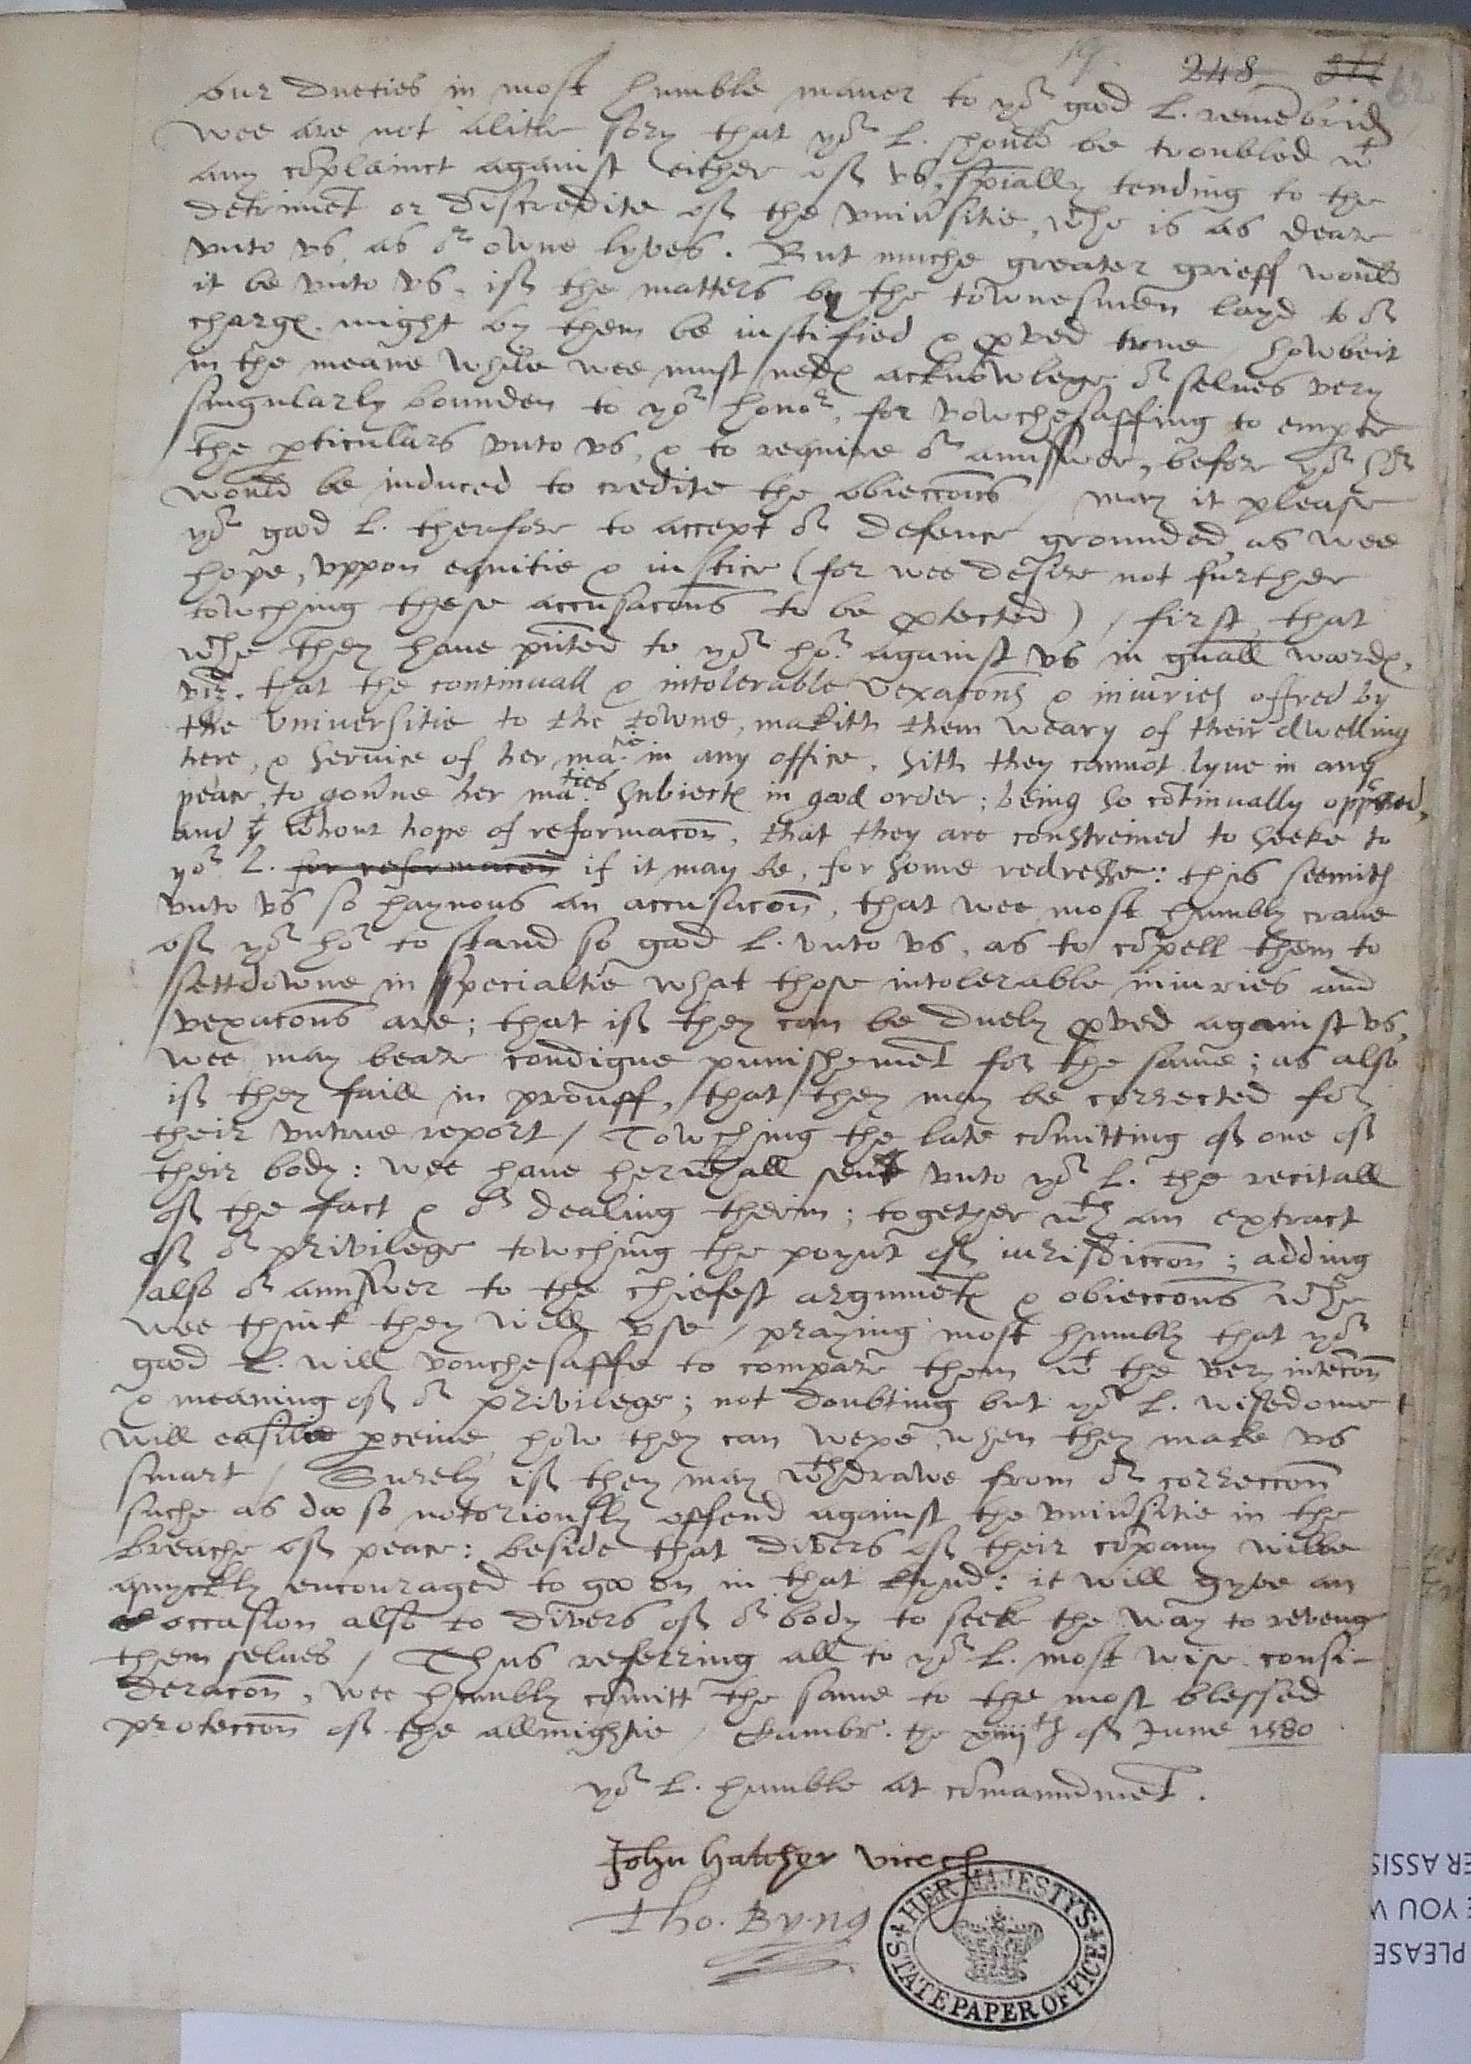 248
62
our dueties in most humble maner to yor good L. remēbrid
wee are not alitle sory that yor L. should be troubled wt
any cōplainct against either of vs, spially tending to the
detrimēt or discredite of the vniūsitie, wche is as deare
vnto vs, as or owne lyves. But muche greater grieff would
it be vnto vs, if the matters by the townesmen layd to or
charge might by them be iustified & pved true / howbeit
in the meane while wee must nedes acknowlege or selues very
singularly bounden to yor honor, for vowchesaffing to emprte
the pticulars vnto vs, & to require or aunswer, before yor hor
would be induced to credite the obieccōns / may it please
yor good L. therfore to accept or defence grounded, as wee
hope, vppon equitie & iustice (for wee desire not further
towching these accusacōns to be ptected) / first, that
wche they haue pnted to yor hor against vs in gnall wordes,
viz. that the continuall & intolerable vexacōns & iniuries offred by
the Vniuersitie to the towne, makith them weary of their dwelling
here, & seruice of her matie in any office, sith they cannot lyue in any
peace, to gouūne her maties subiectes in good order; being so cōtinually oppressed,
and yt wthout hope of reformacōn, that they are constreined to seeke to
yor L. for reformacōn if it may be, for some redresse: this seemith
vnto vs so haynous an accusacōn, that wee most humbly craue
of yor hor to stand so good L. vnto vs, as to cōpell them to
settdowne in specialtie what those intolerable iniuries and
vexacōns are; that if they can be duely pved against vs,
wee may beare condigne punishemēt for the same; as also
if they faill in prouff, that they may be corrected for
their vntrue report / Towching the late cōmitting of one of
their body: wee haue herwthall sent vnto yor L. the recitall
of the fact & or dealing therin; together wth an extract
of or privilege towching the poynt of iurisdiccōn; adding
also or aunswer to the chiefest argumētes & obieccons wche
wee think they will vse / praying most humbly that yor
good L. will vouchesaffe to compare them wt the very intēcōn
& meaning of or privilege; not doubting but yor L. wisedome
will easilie pceiue, how they can wepe, when they make vs
smart / Surely if they may wthdrawe from or correccōn
suche as doo so notoriously offend against the vniūsitie in the
breache of peace: beside that divers of their cōpany wilbe
quyckly encouraged to goo on in that kynd: it will gyve an
occasion also to divers of or body to seek the way to reveng
them selues / Thus referring all to yor L. most wise consi-
deracōn, wee humbly cōmitt the same to the most blessed
proteccōn of the allmightie / Cambr. the xiiijth of June 1580
yor L. humble at cōmaundmēt.
John Hatcher vicech
Tho. Byng
HER MAJESTY'S
STATE PAPER OFFICE
ER ASSIS
E YOU W
PLEASE